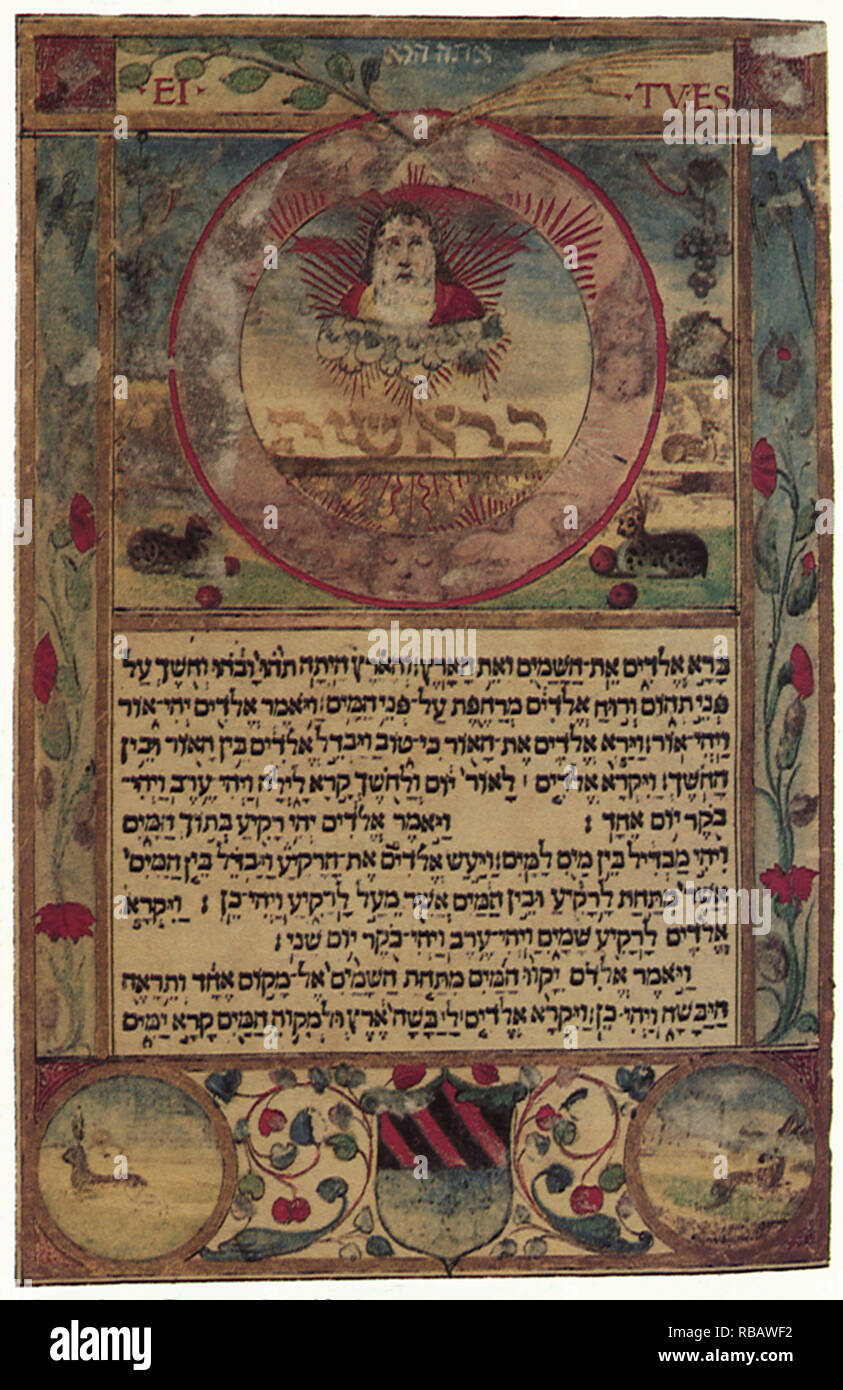 אתה הלא
·EI· ·TV·ES
בראשית
ברא אלדים את־השמים ואת הארץ: והארץ היתה תהו ובהו וחשך על
פני תהום ורוח אלדים מרחפת על־פני המים: ויאמר אלדים יהי־אור
ויהי־אור: וירא אלדים את־האור כי־טוב ויבדל אלדים בין האור ובין
החשך: ויקרא אלדים ׀ לאור יום ולחשך קרא לילה ויהי־ערב ויהי־
בקר יום אחד: ויאמר אלדים יהי רקיע בתוך המים
ויהי מבדיל בין מים למים: ויעש אלדים את־הרקיע ויבדל בין המים
אשר מתחת לרקיע ובין המים אשר מעל לרקיע ויהי־כן: ויקרא
אלדים לרקיע שמים ויהי־ערב ויהי־בקר יום שני:
ויאמר אלדים יקוו המים מתחת השמים אל־מקום אחד ותראה
היבשה ויהי־כן: ויקרא אלדים ליבשה ארץ ולמקוה המים קרא ימים
alamy
Image ID: RBAWF2
www.alamy.com